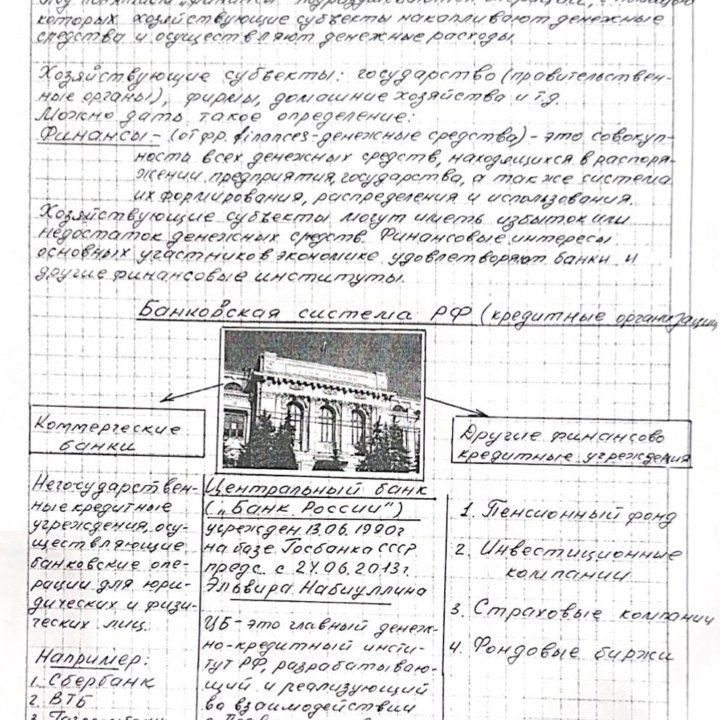 которых хозяйствующие субъекты накапливают денежные
средства и осуществляют денежные расходы.
Хозяйствующие субъекты: государство (правительствен-
ные органы), фирмы, домашние хозяйства и т.д.
Можно дать такое определение:
Финансы - (от фр. finances - денежные средства) - это совокуп-
ность всех денежных средств, находящихся в распоря-
жении предприятия, государства, а также система
их формирования, распределения и использования.
Хозяйствующие субъекты могут иметь избыток или
недостаток денежных средств. Финансовые интересы
основных участников экономике удовлетворяют банки и
другие финансовые институты.
Банковская система РФ (кредитные организации
Коммерческие
банки
Негосударствен-
ные кредитные
учреждения, осу-
ществляющие
банковские опе-
рации для юри-
дических и физи-
ческих лиц.
Например:
1. Сбербанк
2. ВТБ
Центральный банк
(„Банк России")
учрежден 13.06.1990г
на базе Госбанка СССР
предс. с 24.06.2013г.
Эльвира Набиуллина
ЦБ - это главный денеж-
но-кредитный инсти-
тут РФ, разрабатываю-
щий и реализующий
во взаимодействии
Другие финансово
кредитные учреждения
1. Пенсионный фонд
2. Инвестиционные
компании
3. Страховые компании
4. Фондовые биржи